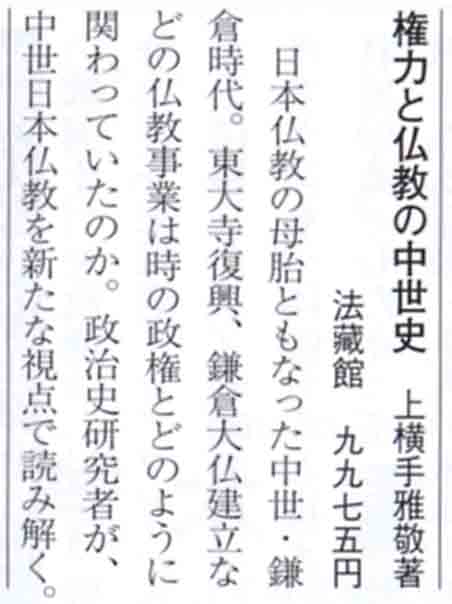 権力と仏教の中世史　上横手雅敬著
法藏館　九九七五円
日本仏教の母胎ともなった中世・鎌
倉時代。東大寺復興、鎌倉大仏建立な
どの仏教事業は時の政権とどのように
関わっていたのか。政治史研究者が、
中世日本仏教を新たな視点で読み解く。